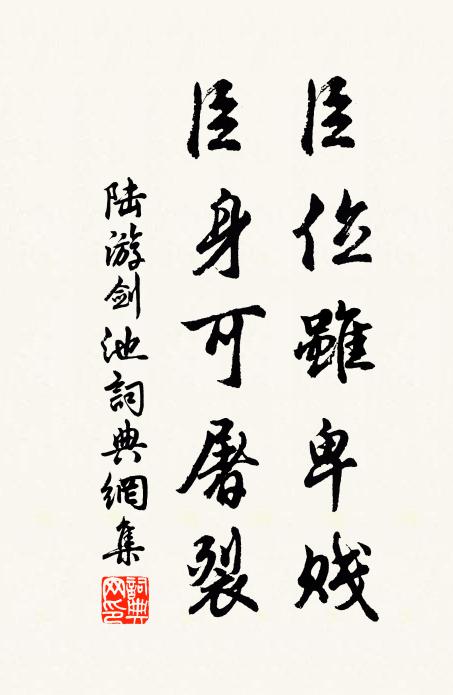 臣位雖卑賤
臣身可屠裂
陆游剑池詞典網集
詞典網印